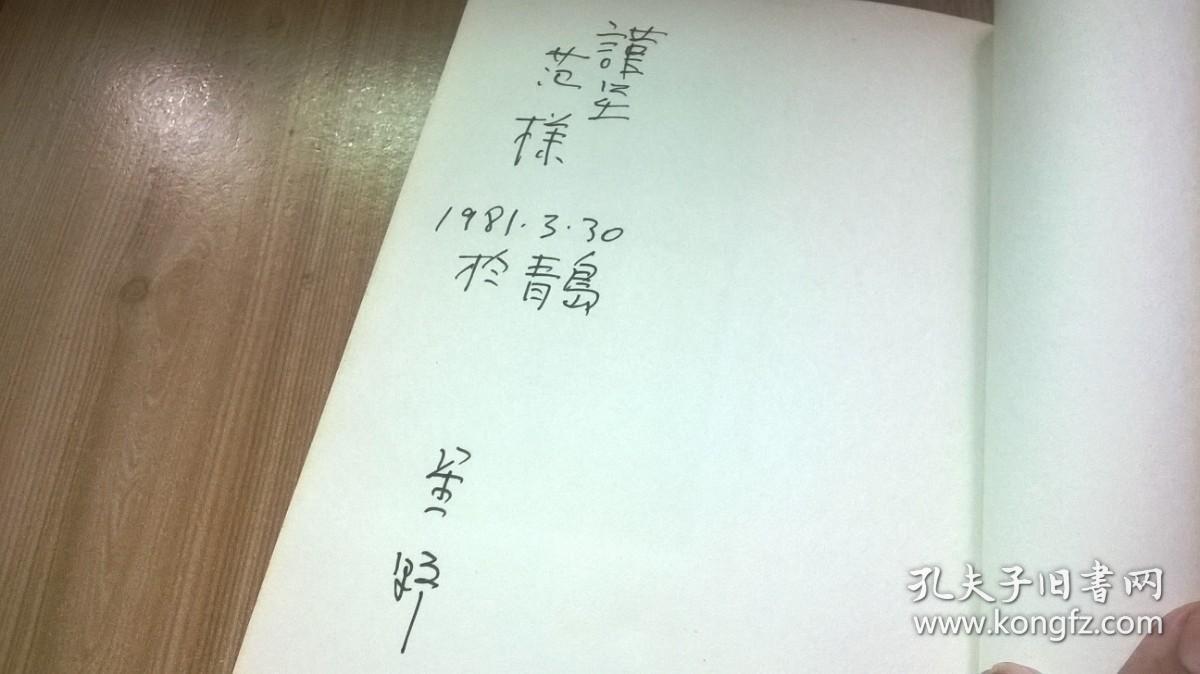 謹呈
范様
1981.3.30
於青島
孔夫子旧书网
www.kongfz.com